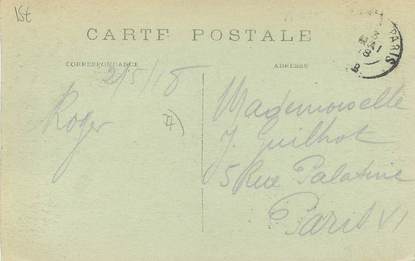 1st
CARTE POSTALE
CORRESPONDANCE
ADRESSE
PARIS
MAI
18
2/5/18
Roger
Mademoiselle
J. Guilhot
5 Rue Palatine
Paris VI